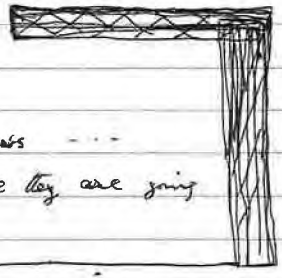 ...
e they are going